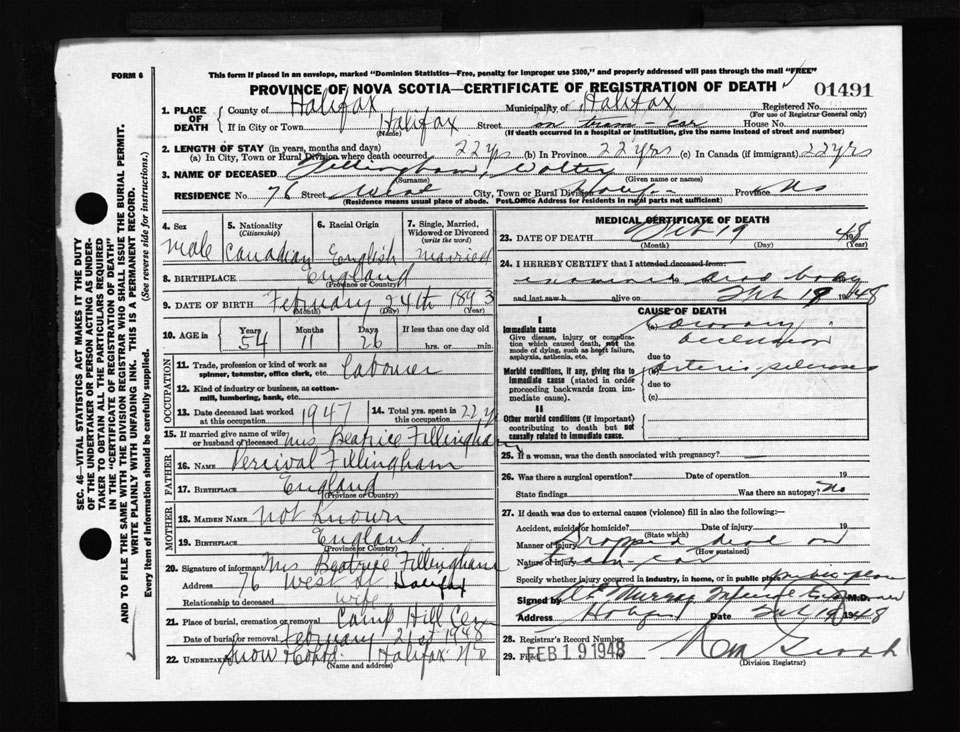 FORM 6
This form if placed in an envelope, marked "Dominion Statistics—Free, penalty for improper use $300," and properly addressed will pass through the mail "FREE"
PROVINCE OF NOVA SCOTIA—CERTIFICATE OF REGISTRATION OF DEATH
01491
1. PLACE OF DEATH
County of Halifax Municipality of Halifax Registered No.
(For use of Registrar General only)
If in City or Town Halifax Street on tram-car House No.
(Name) (If death occurred in a hospital or institution, give the name instead of street and number)
2. LENGTH OF STAY (in years, months and days)
(a) In City, Town or Rural Division where death occurred 22 yrs (b) In Province 22 yrs (c) In Canada (if immigrant) 22 yrs
3. NAME OF DECEASED Fillingham, Walter
(Surname) (Given name or names)
RESIDENCE No 76 Street West City, Town or Rural Division Province NS
(Residence means usual place of abode. Post Office Address for residents in rural parts not sufficient)
4. Sex
male
5. Nationality
(Citizenship)
Canadian
6. Racial Origin
English
7. Single, Married,
Widowed or Divorced
(write the word)
married
8. BIRTHPLACE England
(Province or Country)
9. DATE OF BIRTH February 24th 1893
(Month) (Day) (Year)
10. AGE in
Years Months Days If less than one day old
54 11 26 hrs. or min.
OCCUPATION
11. Trade, profession or kind of work as
spinner, teamster, office clerk, etc. labourer
12. Kind of industry or business, as cotton-
mill, lumbering, bank, etc.
13. Date deceased last worked
at this occupation 1947
14. Total yrs. spent in
this occupation 22 yrs
15. If married give name of wife
or husband of deceased Mrs Beatrice Fillingham
FATHER
16. NAME Percival Fillingham
17. BIRTHPLACE England
(Province or Country)
MOTHER
18. MAIDEN NAME not known
19. BIRTHPLACE England
(Province or Country)
20. Signature of informant Mrs Beatrice Fillingham
Address 76 West St Halifax
Relationship to deceased wife
21. Place of burial, cremation or removal Camp Hill Cem
Date of burial or removal February 21st 1948
22. Undertaker Snow & Co Halifax NS
(Name and address)
MEDICAL CERTIFICATE OF DEATH
23. DATE OF DEATH Feb 19 48
(Month) (Day) (Year)
24. I HEREBY CERTIFY that I attended deceased from:
examined dead body
and last saw h alive on Feb 19 1948
CAUSE OF DEATH
I
Immediate cause
Give disease, injury or complica-
tion which caused death, not the
mode of dying, such as heart failure,
asphyxia, asthenia, etc.
(a) Coronary
occlusion
due to
Morbid conditions, if any, giving rise to
immediate cause (stated in order
proceeding backwards from im-
mediate cause).
(b) Arteriosclerosis
due to
(c)
II
Other morbid conditions (if important)
contributing to death but not
causally related to immediate cause.
25. If a woman, was the death associated with pregnancy?
26. Was there a surgical operation? Date of operation 19
State findings Was there an autopsy? No
27. If death was due to external causes (violence) fill in also the following:—
Accident, suicide or homicide? Date of injury 19
(State which)
Manner of injury Dropped dead on
(How sustained)
Nature of injury tram-car
Specify whether injury occurred in industry, in home, or in public place public place
Signed by Murray Medical Examiner M.D.
Address Date Feb 19 1948
28. Registrar's Record Number
29. Filed FEB 19 1948
(Division Registrar)
SEC. 46—VITAL STATISTICS ACT MAKES IT THE DUTY
OF THE UNDERTAKER OR PERSON ACTING AS UNDER-
TAKER TO OBTAIN ALL THE PARTICULARS REQUIRED
IN THE "CERTIFICATE OF REGISTRATION OF DEATH"
AND TO FILE THE SAME WITH THE DIVISION REGISTRAR WHO SHALL ISSUE THE BURIAL PERMIT.
WRITE PLAINLY WITH UNFADING INK. THIS IS A PERMANENT RECORD.
Every item of information should be carefully supplied. (See reverse side for instructions.)